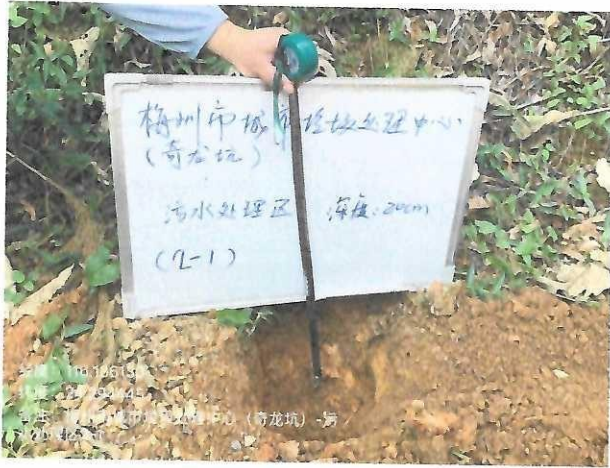 梅州市城市垃圾处理中心
(奇龙坑)
污水处理区 深度:20cm
(Z-1)
经度:
纬度:
备注: 梅州市城市垃圾处理中心(奇龙坑)-污
水处理区